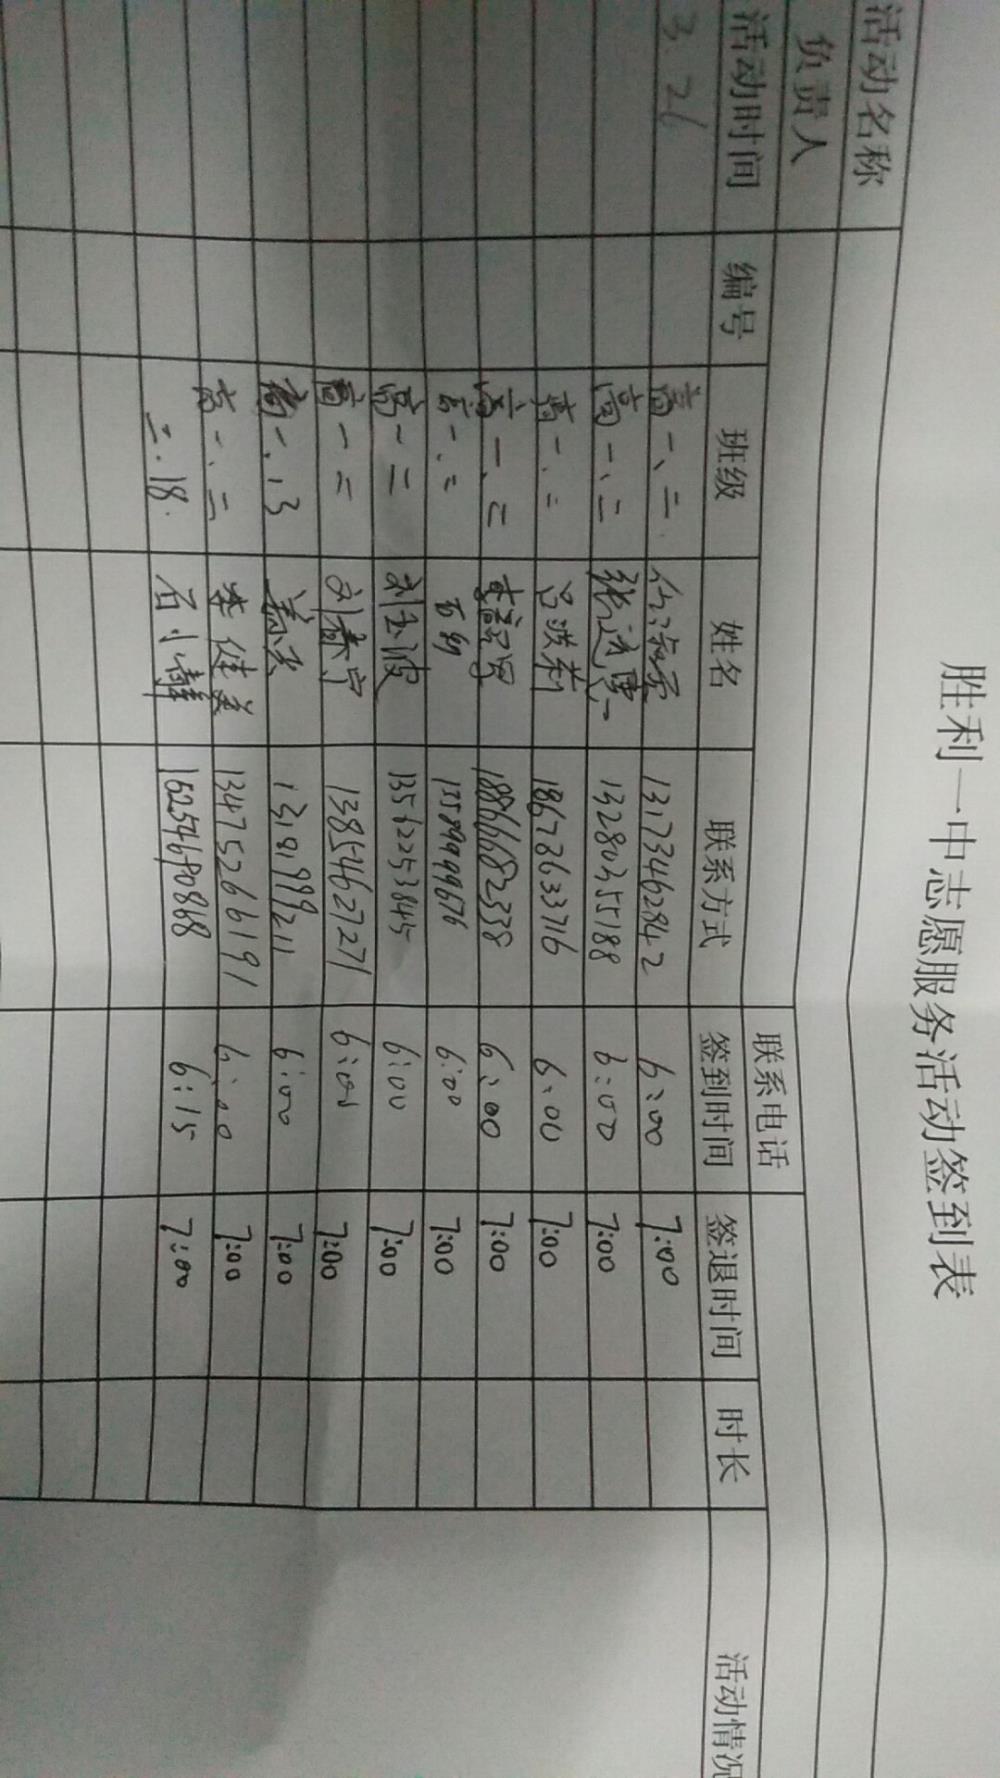 胜利一中志愿服务活动签到表
活动名称
负责人 联系电话
活动时间 编号 班级 姓名 联系方式 签到时间 签退时间 时长 活动情况
3.26 高一、二 13173462842 6:00 7:00
高一、二 13280355188 6:00 7:00
高一、二 吕淡莉 18678633716 6:00 7:00
高一、二 18866682338 6:00 7:00
高一、二 13589999676 6:00 7:00
高一二 刘玉波 13562253845 6:00 7:00
高一二 刘春宁 13854627271 6:00 7:00
高一、13 姜宏 13181999211 6:00 7:00
高一、二 李健美 13475266191 6:00 7:00
二.18. 石小静 15254680868 6:15 7:00